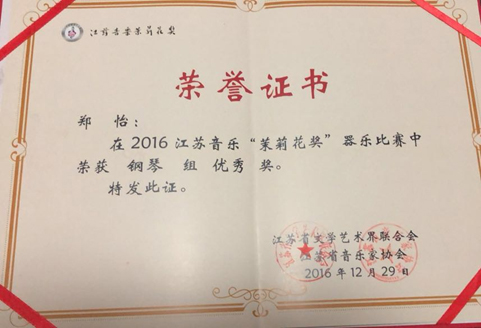 江苏音乐茉莉花奖
荣誉证书
郑 怡：
在 2016 江苏音乐“茉莉花奖”器乐比赛中
荣获 钢琴 组 优秀 奖。
特发此证。
江苏省文学艺术界联合会
江苏省音乐家协会
2016 年 12 月 29 日